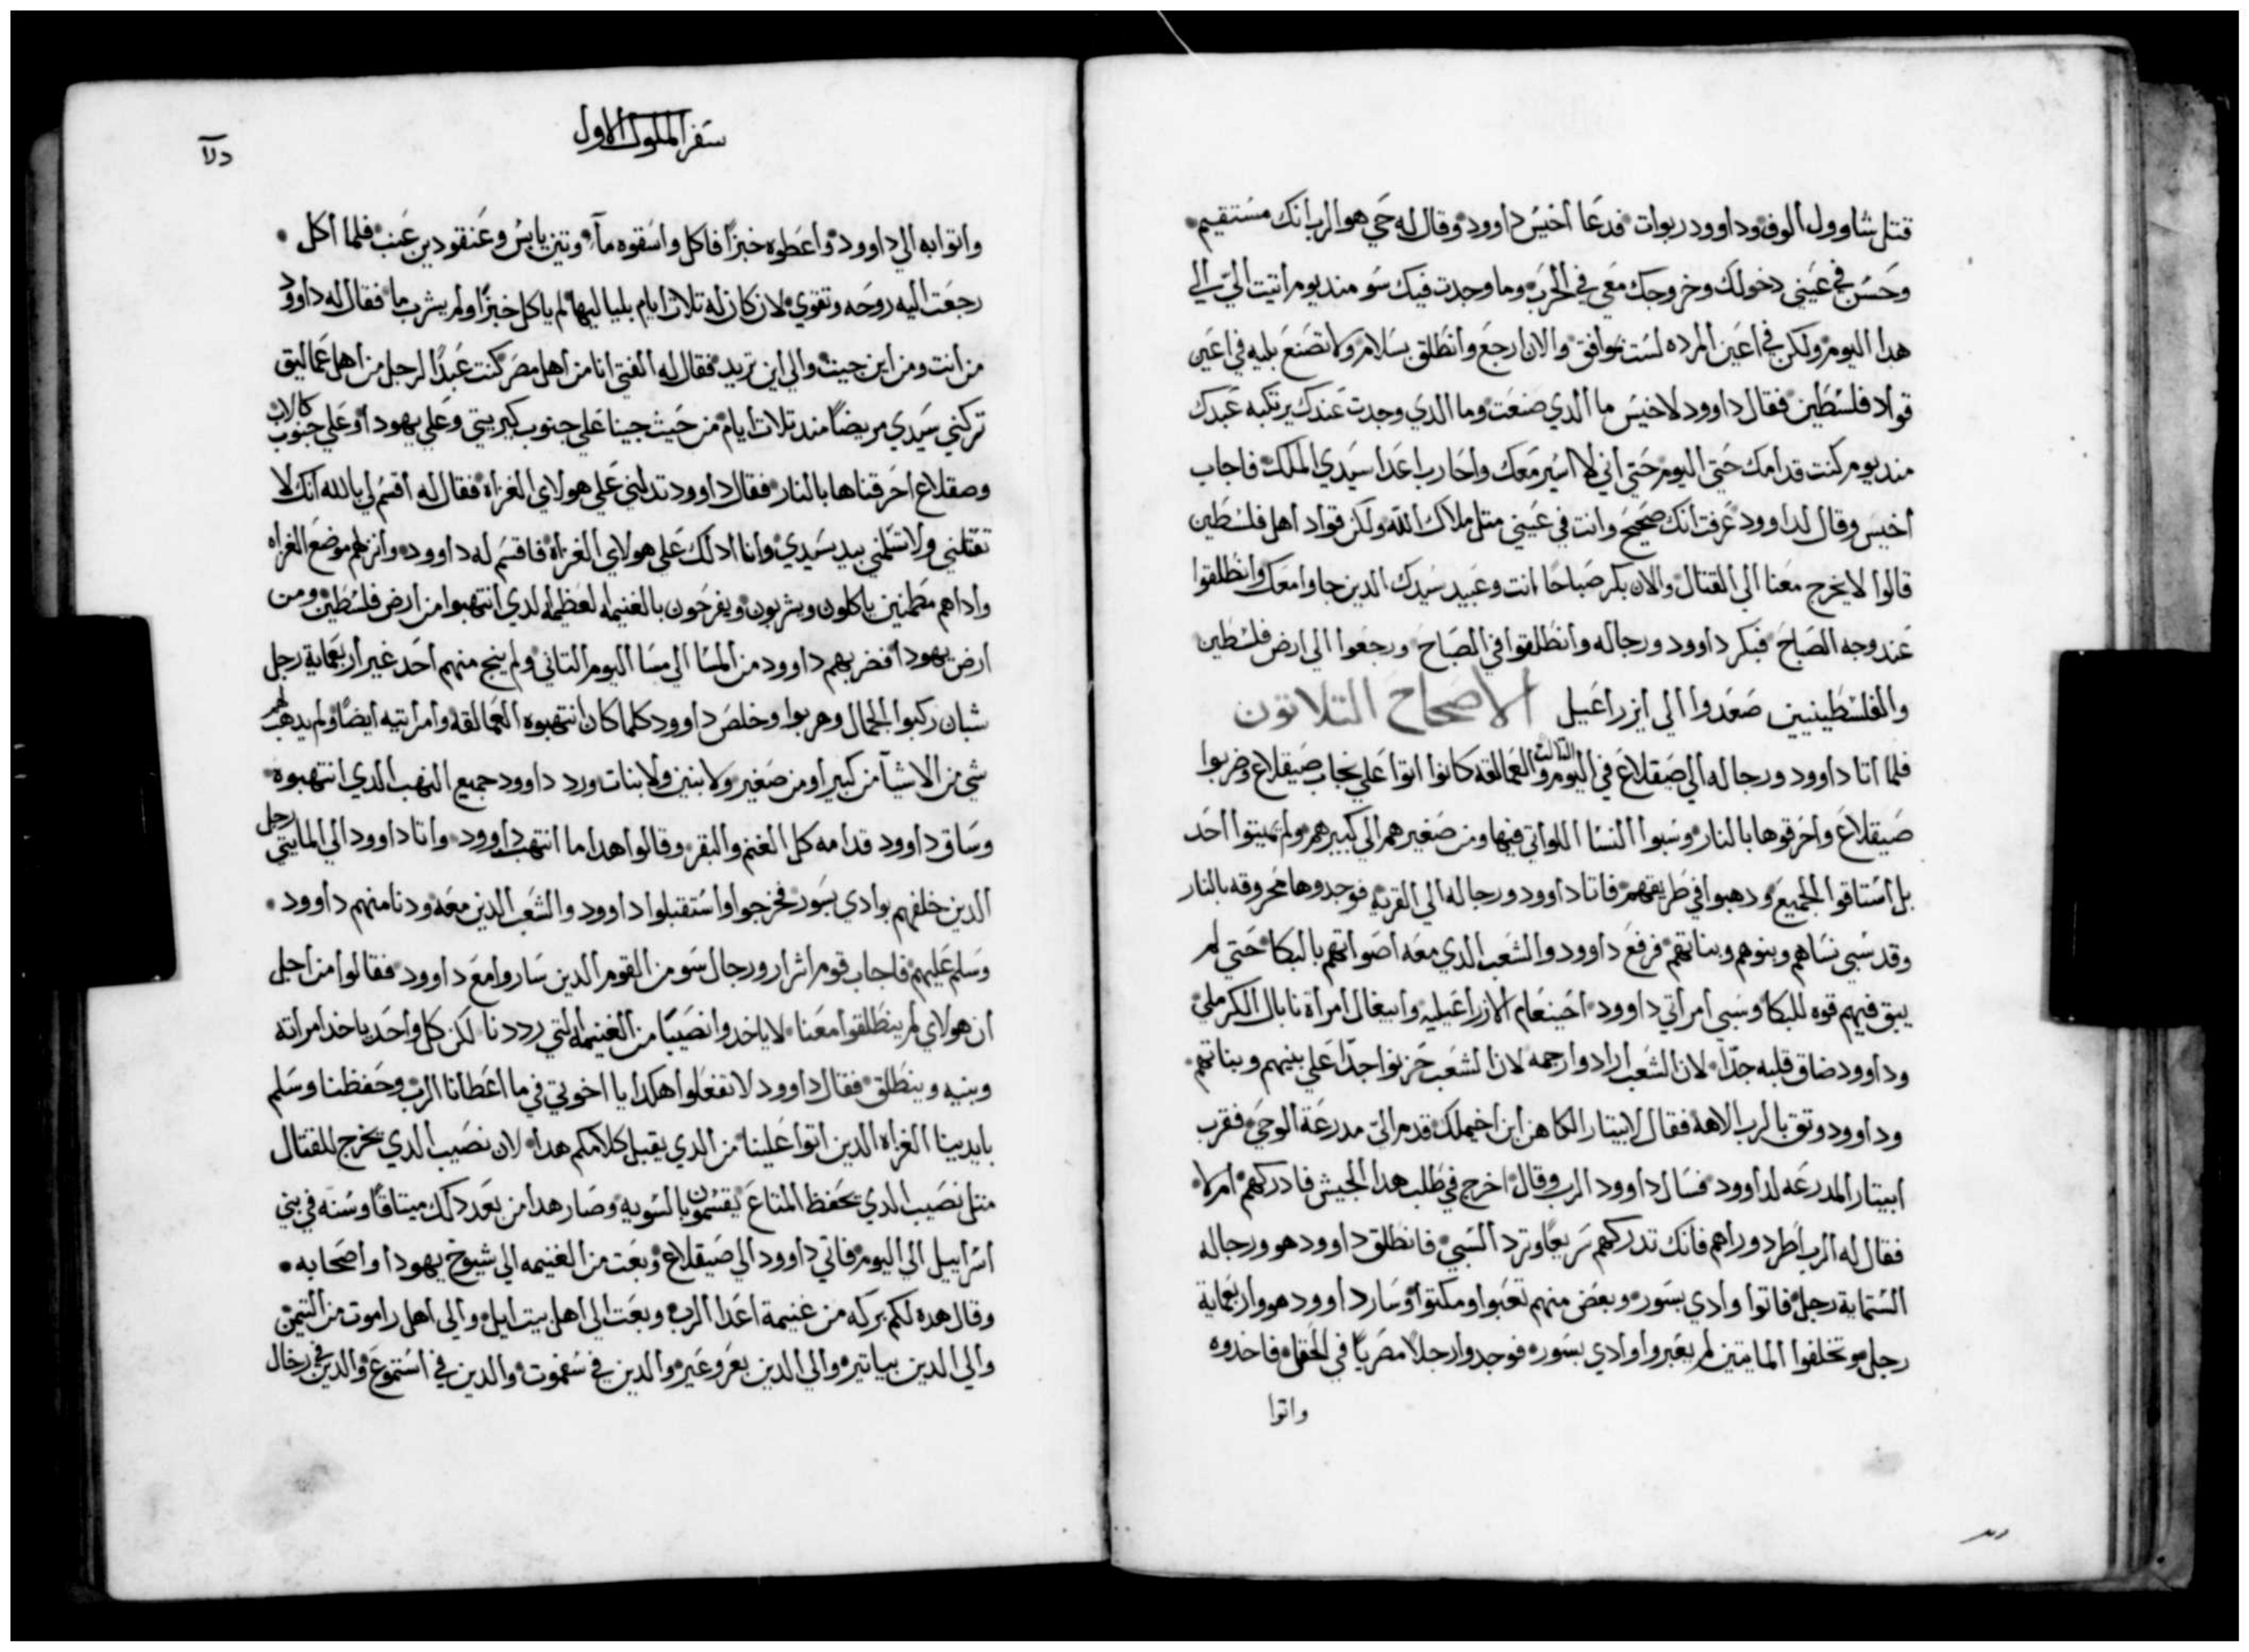 قتل شاوول ألوف وداوود ربوات فدعا أخيس داوود وقال له حي هو الرب انك مستقيم
وحسن في عيني دخولك وخروجك معي في الحرب وما وجدت فيك سو منديوم أتيت اليّ الي
هدا اليوم ولكن في اعين المرده لست بموافق والان ارجع وانطلق بسلام ولا تصنع بليه في اعين
قواد فلسطين فقال داوود لاخيس ما الدي صنعت وما الدي وجدت عندك يرتكبه عبدك
منديوم كنت قدامك حتي اليوم حتي اني لا اسير معك واحارب اعدا سيدي الملك فاجاب
أخيس وقال لداوود عرفت انك صحيح وانت في عيني متل ملاك الله ولكن قواد أهل فلسطين
قالوا لا يخرج معنا الي القتال والان بكر صباحًا انت وعبيد سيدك الدين جاوا معك وانطلقوا
عند وجه الصباح فبكر داوود ورجاله وانطلقوا في الصباح ورجعوا الي ارض فلسطين
والفلسطينيين صعدوا الي ايزراعيل الاصحاح التلاتون
فلما اتا داوود ورجاله الي صقلاع في اليوم التالت والعمالقه كانوا اتوا علي صيقلاع وضربوا
صيقلاع واحرقوها بالنار وسبوا النسا اللواتي فيها ومن صغيرهم الي كبيرهم ولم يميتوا احد
بل استاقوا الجميع ودهبوا في طريقهم فاتا داوود ورجاله الي القريه فوجدوها محروقه بالنار
وقد سبي نساهم وبنوهم وبناتهم فرفع داوود والشعب الدي معه اصواتهم بالبكا حتي لم
يبق فيهم قوه للبكا وسبي أمرأتي داوود احينعام الازراعيليه وابيغال امرأة نابال الكرملي
وداوود ضاق قلبه جدًا لان الشعب ارادوا رجمه لان الشعب حزنوا جدًا علي بنيهم وبناتهم
وداوود وتق بالرب الاهه فقال لابيتار الكاهن ابن اخيملك قدم اليّ مدرعة الوحي فقرب
ابيتار المدرعه لداوود فسال داوود الرب وقال اخرج في طلب هدا الجيش فادركهم ام لا
فقال له الرب أطرد وراهم فانك تدركهم سريعًا وترد السبي فانطلق داوود هو ورجاله
الستماية رجل فاتوا وادي بسور وبعض منهم تعبوا ومكتوا وسار داوود هو واربعماية
رجل وتخلفوا المايتين لم يعبروا وادي بسور فوجدوا رجلاً مصريًا في الحقل فاخدوه
واتوا
سفر الملوك الاول
واتوا به الي داوود وأعطوه خبزًا فاكل واسقوه مآء وتين يابس وعنقودين عنب فلما أكل
رجعت اليه روحه وتقوي لان كان له تلاتة ايام بلياليها لم ياكل خبزًا ولم يشرب ما فقال له داوود
من أنت ومن أين جيت والي اين تريد فقال له الفتي انا من أهل مصر كنت عبدًا لرجل من أهل عماليق
تركني سيدي مريضًا مند تلات ايام من حيث جينا علي جنوب كيريتي وعلي يهودا وعلي جنوب كالاب
وصقلاع احرقناها بالنار فقال داوود تدلني علي هولاي الغزاة فقال له أقسم لي بالله انك لا
تقتلني ولا تسلمني بيد سيدي وانا ادلك علي هولاي الغزاة فاقسم له داوود وانزلهم موضع الغزاه
واداهم مطمنين ياكلون ويشربون ويفرحون بالغنيمه العظيمه الدي انتهبوا من ارض فلسطين ومن
ارض يهودا فضربهم داوود من المسا الي مسا اليوم التاني ولم ينج منهم أحد غير أربعماية رجل
شبان ركبوا الجمال وهربوا وخلص داوود كلما كان انتهبوه العمالقه وامراتيه ايضًا ولم يدهب لهم
شي من الاشيآ من كبير أو من صغير ولا بنين ولا بنات ورد داوود جميع النهب الدي انتهبوه
وساق داوود قدامه كل الغنم والبقر وقالوا هدا ما انتهب داوود واتا داوود الي المايتي رجل
الدين خلفهم بوادي بسور فخرجوا واستقبلوا داوود والشعب الدين معه ودنا منهم داوود
وسلم عليهم فاجاب قوم اشرار ورجال سو من القوم الدين ساروا مع داوود فقالوا من اجل
ان هولاي لم ينطلقوا معنا لا ياخدوا نصيبًا من الغنيمه التي رددنا لكن كل واحد ياخد امراته
وبنيه وينطلق فقال داوود لا تفعلوا هكدا يا اخوتي في ما اعطانا الرب وحفظنا وسلم
بايدينا الغزاه الدين اتوا علينا من الدي يقبل كلامكم هدا لان نصيب الدي يخرج للقتال
متل نصيب الدي يحفظ المتاع يقسمون بالسويه وصار هدا من بعد دلك ميتاقًا وسنه في بني
اسراييل الي اليوم فاتي داوود الي صيقلاع وبعت من الغنيمه الي شيوخ يهودا واصحابه
وقال هده لكم بركه من غنيمة اعدا الرب وبعت الي اهل بيت ايل والي أهل راموت من التيمن
والي الدين بياتير والي الدين بعروعير والدين في سفموت والدين في استموع والدين في رخال